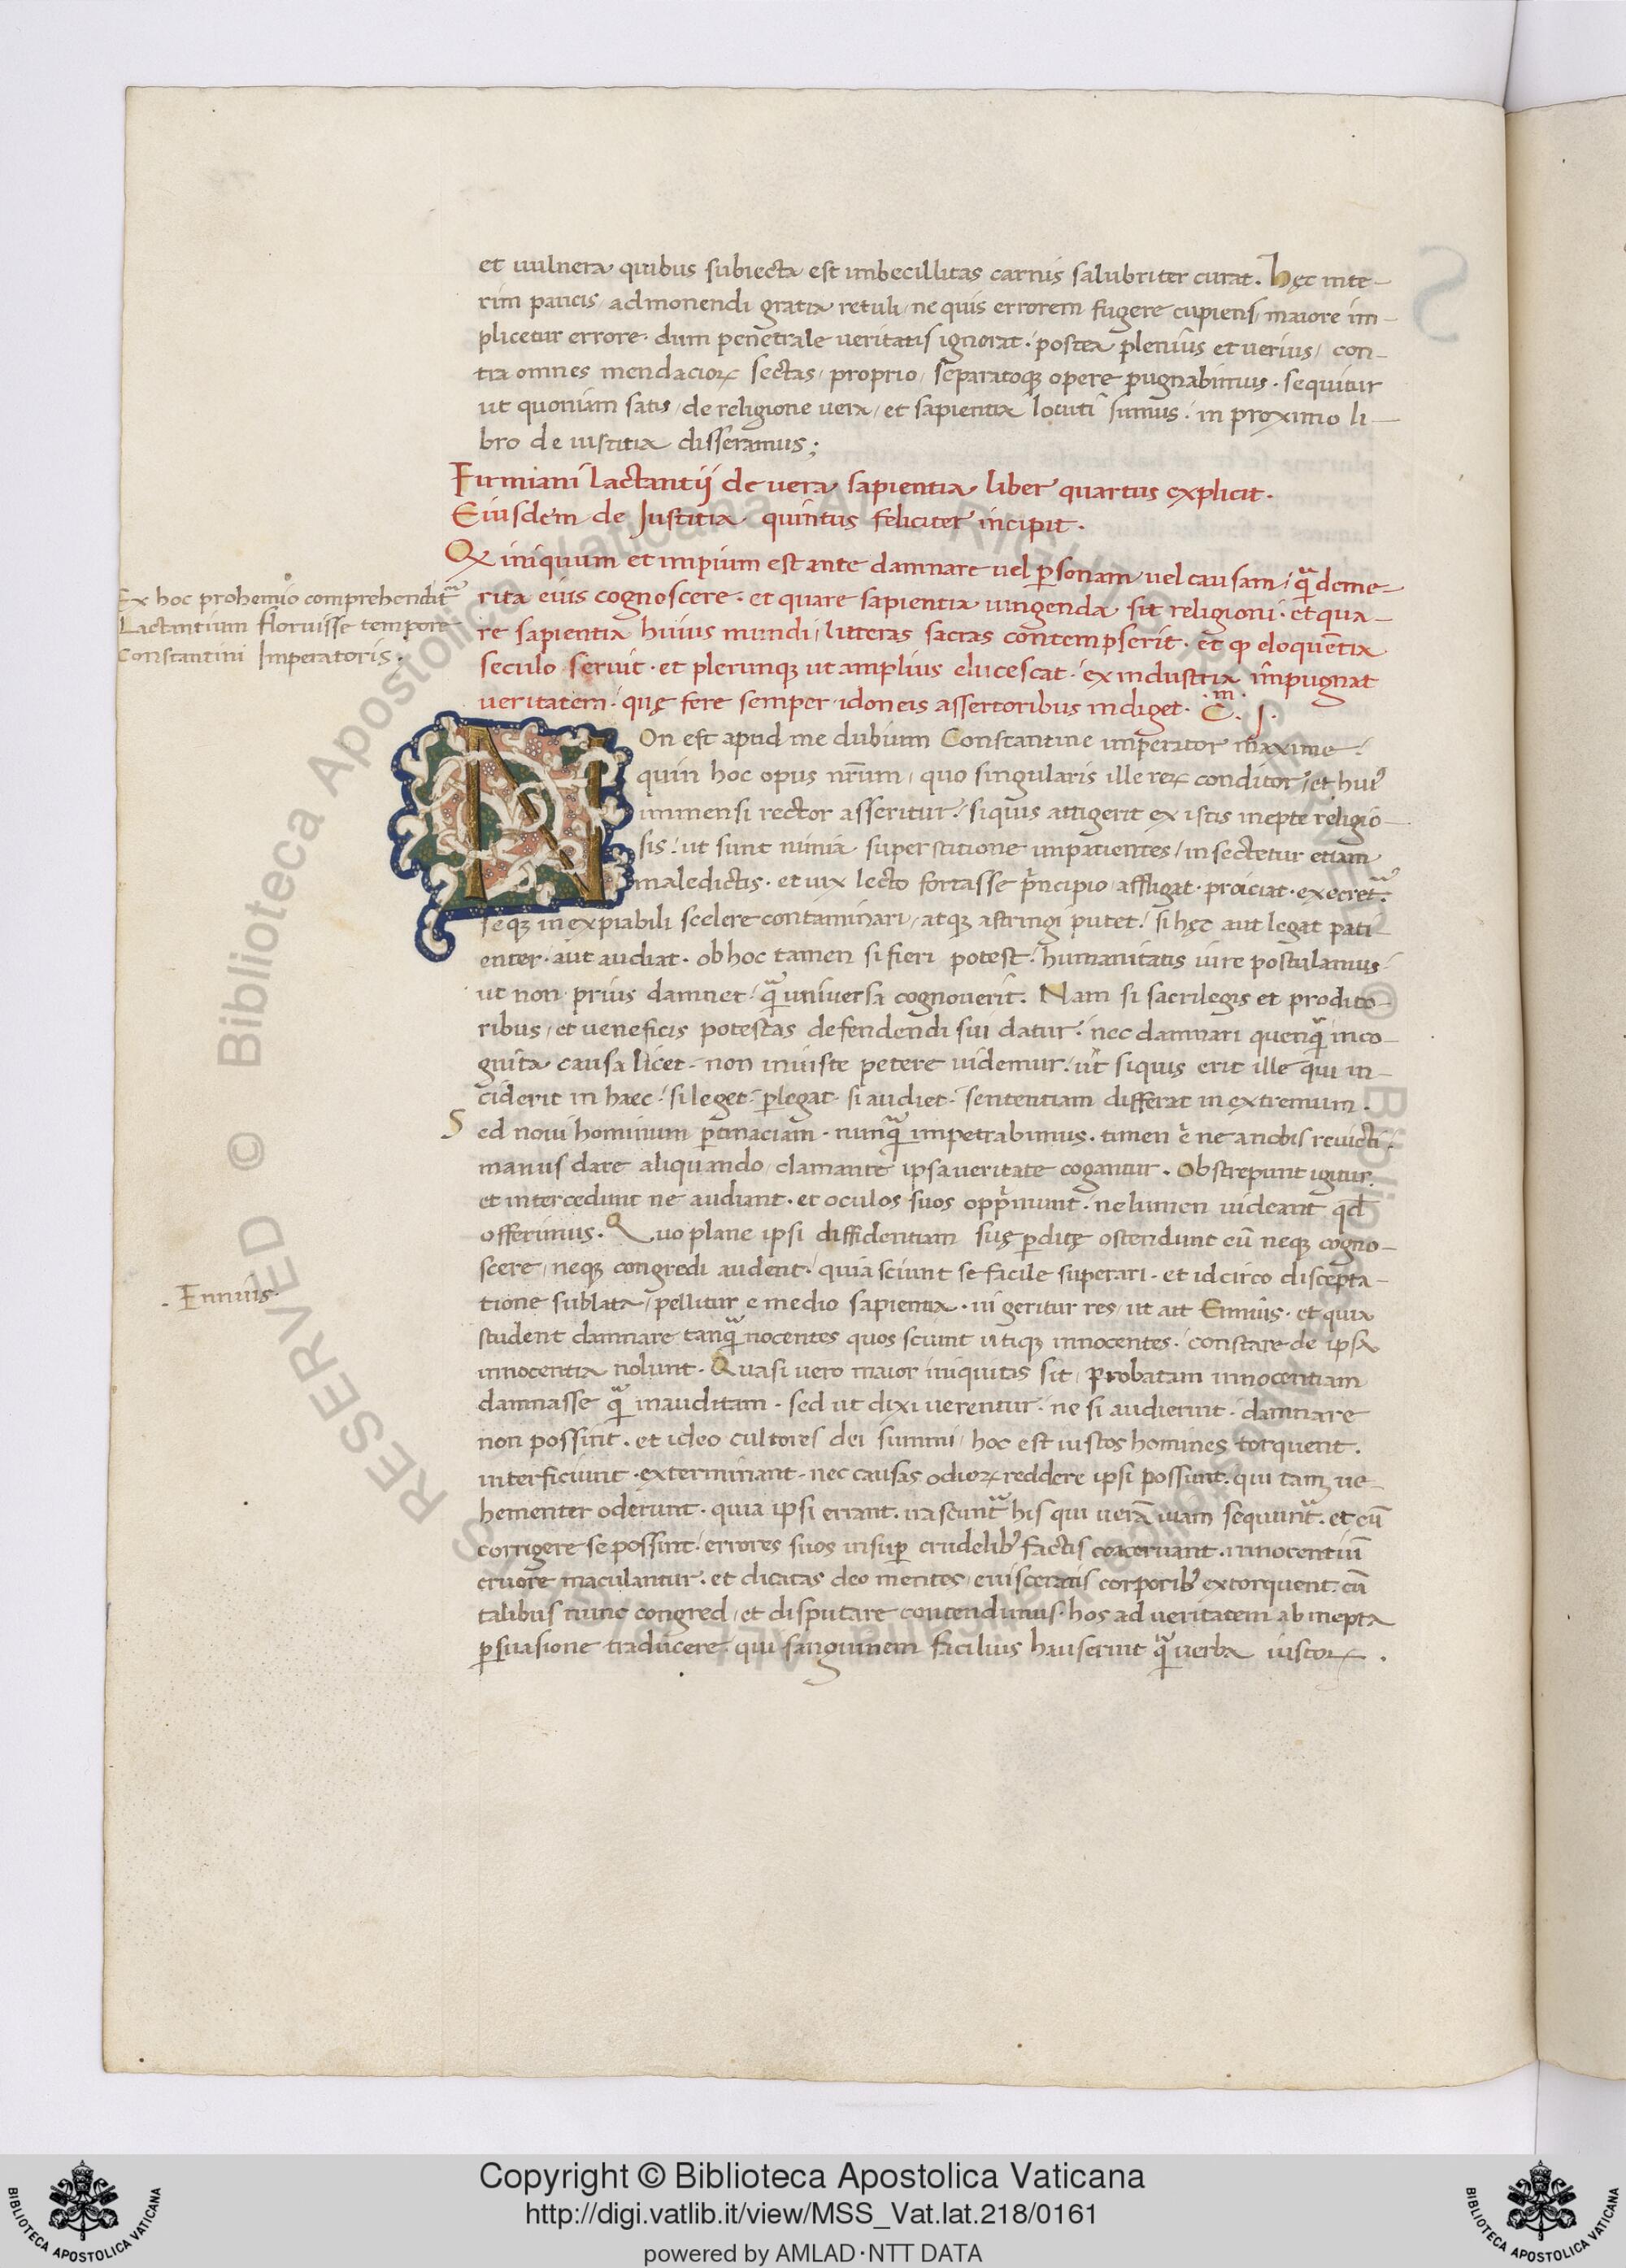 et uulnera quibus subiecta est imbecillitas carnis salubriter curat. Hęc inte-
rim paucis admonendi gratia retuli, ne quis errorem fugere cupiens, maiore im-
plicetur errore. dum penetrale ueritatis ignorat. postea plenius et uerius, con-
tra omnes mendacioꝝ sectas, proprio, separatoqꝫ opere ꝑugnabimus. sequitur
ut quoniam satis, de religione uera, et sapientia locuti sumus. in proximo li-
bro de iustitia disseramus;
Firmiani lactantij de uera sapientia liber quartus explicit.
Eiusdem de Iustitia quintus feliciter incipit.
Qꝫ iniquum et impium est ante damnare uel ꝑsonam, uel causam, qͣ̃ deme-
rita eius cognoscere. et quare sapientia iungenda sit religioni. et qua-
re sapientia huius mundi, litteras sacras contempserit. et ꝙ eloquẽtia
seculo seruit. et plerunqꝫ ut amplius elucescat. ex industria impugnat
ueritatem. quę fere semper idoneis assertoribus indiget. C.m I.
Ex hoc prohemio comprehenditᷓ
Lactantium floruisse tempore
Constantini Imperatoris.
NOn est apud me dubium Constantine imperator maxime.
quin hoc opus nr̃um, quo singularis ille reꝝ conditor, et huiꝰ
immensi rector asseritur. siquis attigerit ex istis inepte religio-
sis. ut sunt nimia superstitione impatientes, insectetur etiam
maledictis. et uix lecto fortasse pͥncipio, affligat. proiciat. execretᷓ.
seqꝫ inexpiabili scelere contaminari, atqꝫ astringi putet. si hęc aut legat pati-
enter. aut audiat. ob hoc tamen si fieri potest. humanitatis iure postulamus.
ut non prius damnet. qͣ̃ uniuersa cognouerit. Nam si sacrilegis et prodito-
ribus, et ueneficis potestas defendendi sui datur. nec damnari quenqͣ̃ inco-
gnita causa licet. non iniuste petere uidemur. ut siquis erit ille qui in-
ciderit in haec. si leget. ꝑlegat. si audiet. sententiam differat in extremum.
Sed noui hominum ꝑtinaciam. nunqͣ̃ impetrabimus. timen t̃ ne a nobis reuicti.
manus dare aliquando, clamante ipsa ueritate cogantur. Obstrepunt igitur.
et intercedunt ne audiant. et oculos suos oppͥmunt. ne lumen uideant qd̃
offerimus. Quo plane ipsi diffidentiam suę ꝑditę ostendunt cũ neqꝫ cogno-
scere, neqꝫ congredi audent. quia sciunt se facile superari. et idcirco discepta-
. Ennius.
tione sublata, pellitur e medio sapientia. ui geritur res, ut ait Ennius. et quia
student damnare tanqͣ̃ nocentes quos sciunt utiqꝫ innocentes. constare de ipsa
innocentia nolunt. Quasi uero maior iniquitas sit, probatam innocentiam
damnasse qͣ̃ inauditam. sed ut dixi uerentur. ne si audierint. damnare
non possint. et ideo cultores dei summi, hoc est iustos homines torquent.
interficiunt. exterminant. nec causas odioꝝ reddere ipsi possunt. qui tam ue-
hementer oderunt. quia ipsi errant. irascuntᷓ his qui uerã uiam sequuntᷓ. et cũ
corrigere se possint. errores suos insuꝑ crudelibꝰ factis coaceruant. innocentiũ
cruore maculantur. et dicatas deo mentes, euisceratis corporibꝰ extorquent. cũ
talibus nunc congred, et disputare contendimus. hos ad ueritatem ab inepta
ꝑsuasione traducere. qui sanguinem facilius hauserint qͣ̃ uerba iustoꝝ.
Copyright © Biblioteca Apostolica Vaticana
http://digi.vatlib.it/view/MSS_Vat.lat.218/0161
powered by AMLAD·NTT DATA